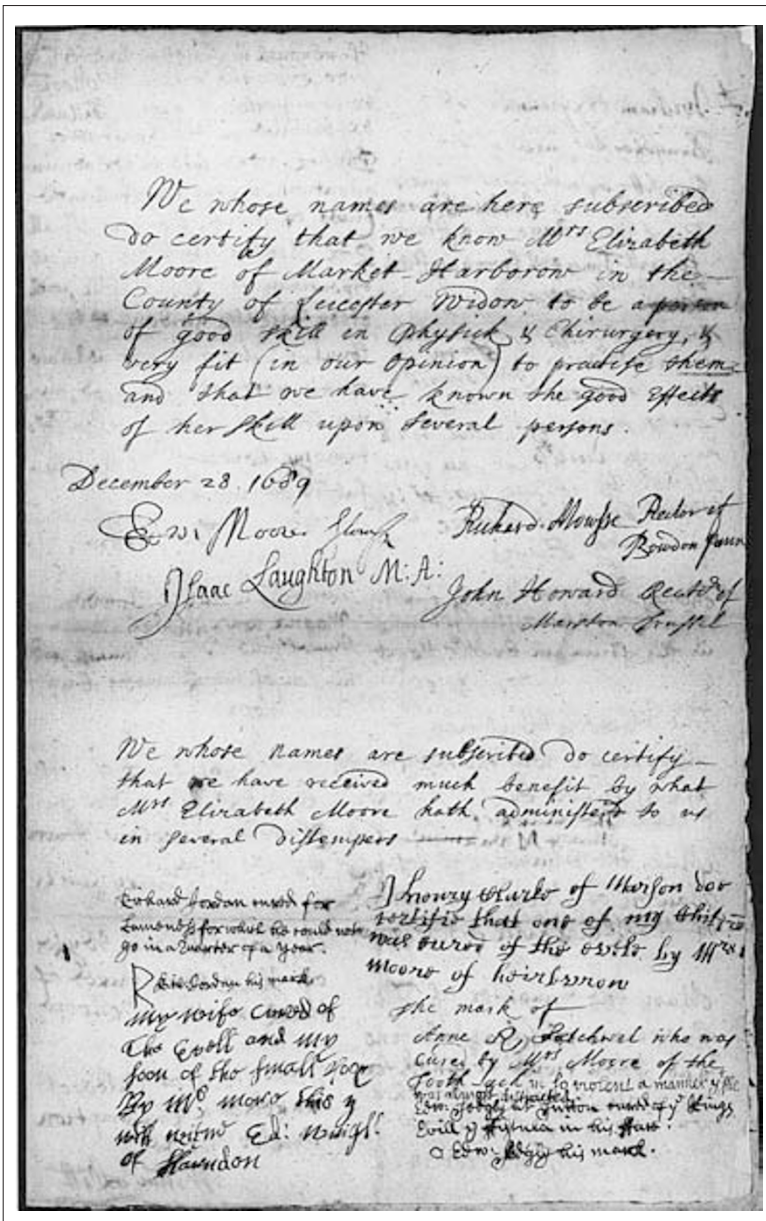 We whose names are here subscribed
do certify that we know Mrs Elizabeth
Moore of Market-Harborow in the
County of Leicester Widow to be a person
of good skill in Physick & Chirurgery, &
very fit (in our opinion) to practise them
and that we have known the good effects
of her skill upon several persons.
December 28. 1689
Edw: Moore
Richard Mowsse Rector of
Bowdon parva
Isaac Laughton M:A:
John Howard Rector of
Marston Trussel
We whose names are subscribed do certify
that we have received much benefit by what
Mrs Elizabeth Moore hath administerd to us
in several distempers
Jordan cured for
Lameness for what he could not
go in a Quarter of a year.
R Jordan his mark
My wife Cured of
The Evell and my
soon of the small pox
By Ms more this y
will Ed: Wright
of
I henry Clarke of Marson doe
certifie that one of my
was cured of the evile by Mrs
Moore of
The mark of
Anne R who was
Cured by Mrs Moore of the
Tooth-ach in so violent a manner y she
was almost distracted
Edw: of Sutton cured of ye Kings
Evill & in his
Edw: his mark.